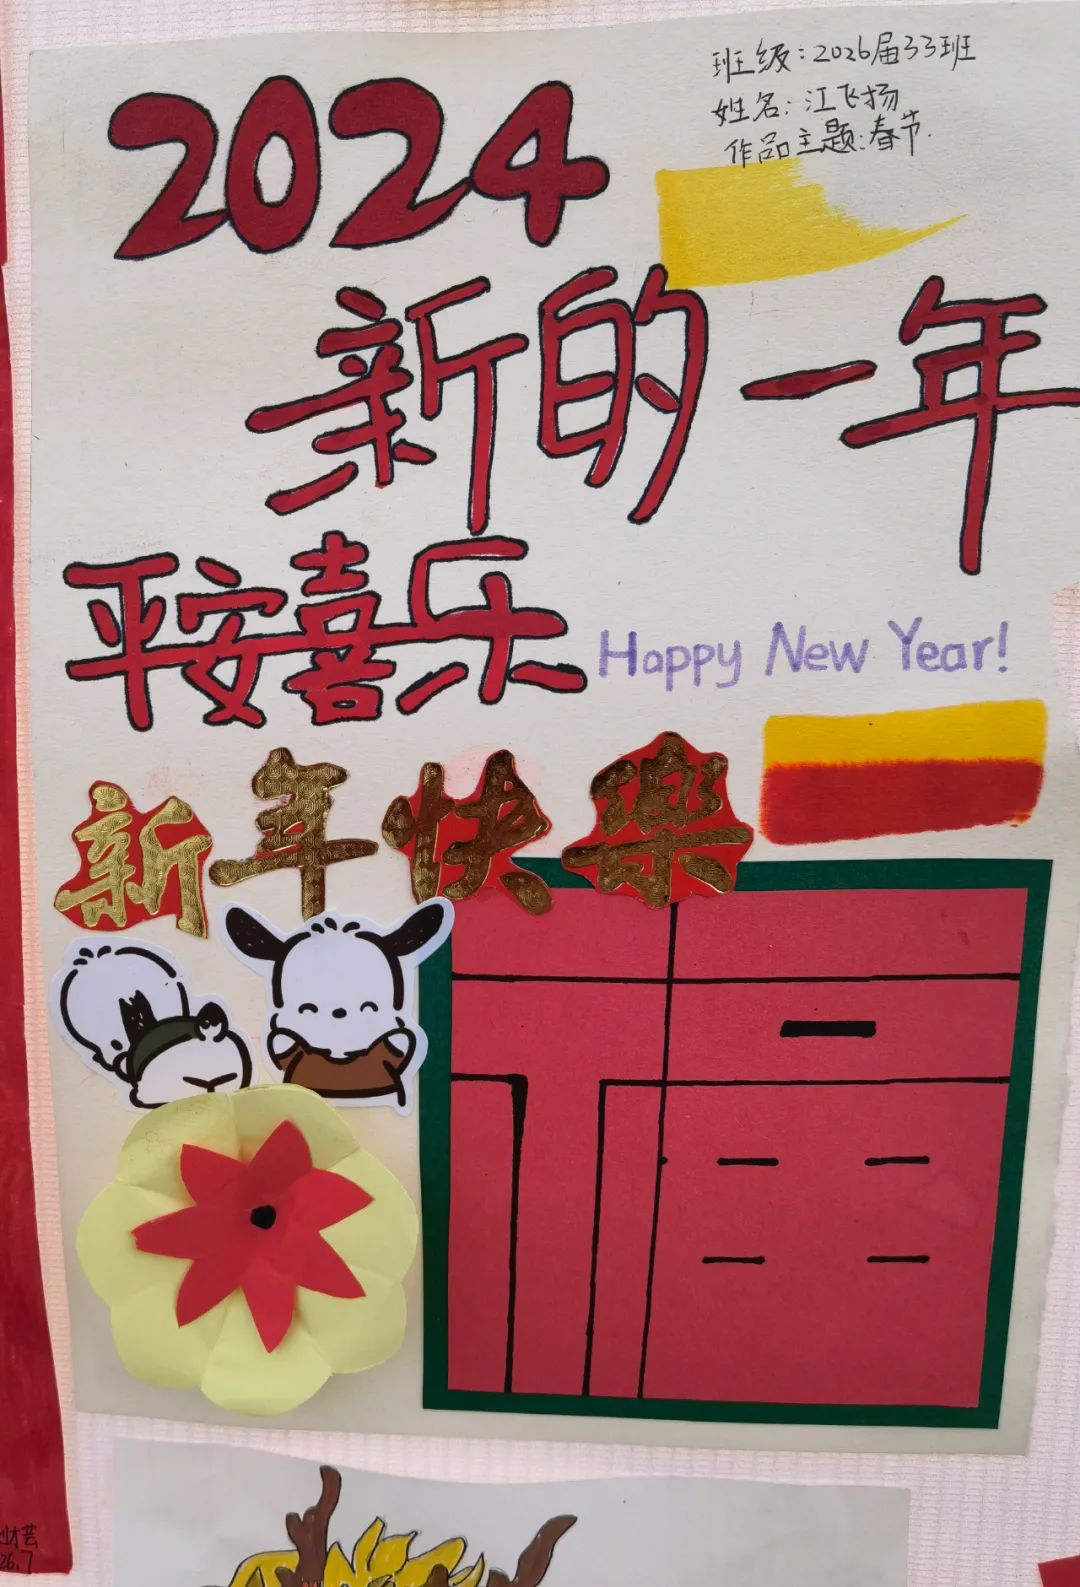 班级:2026届33班
姓名:江飞扬
作品主题:春节.
2024
新的一年
平安喜乐
Happy New Year!
新年快樂
福
26.7